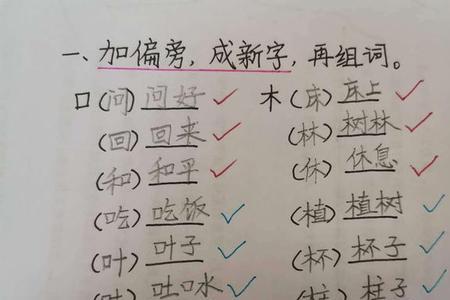 一、加偏旁，成新字，再组词。
口(问) 问好 木(床) 床上
(回) 回来 (林) 树林
(和) 和平 (休) 休息
(吃) 吃饭 (植) 植树
(叶) 叶子 (杯) 杯子
(吐) 吐口水 (柱) 柱子